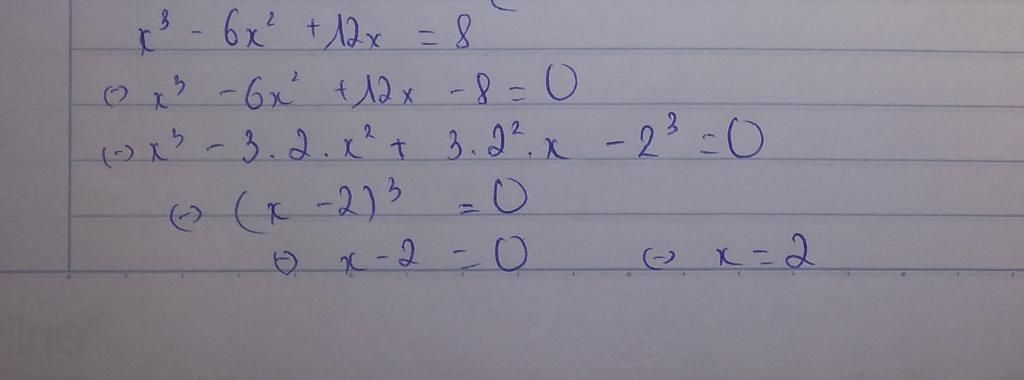 x³ - 6x² + 12x = 8
⇔ x³ - 6x² + 12x - 8 = 0
⇔ x³ - 3.2.x² + 3.2².x - 2³ = 0
⇔ (x - 2)³ = 0
⇔ x - 2 = 0 ⇔ x = 2